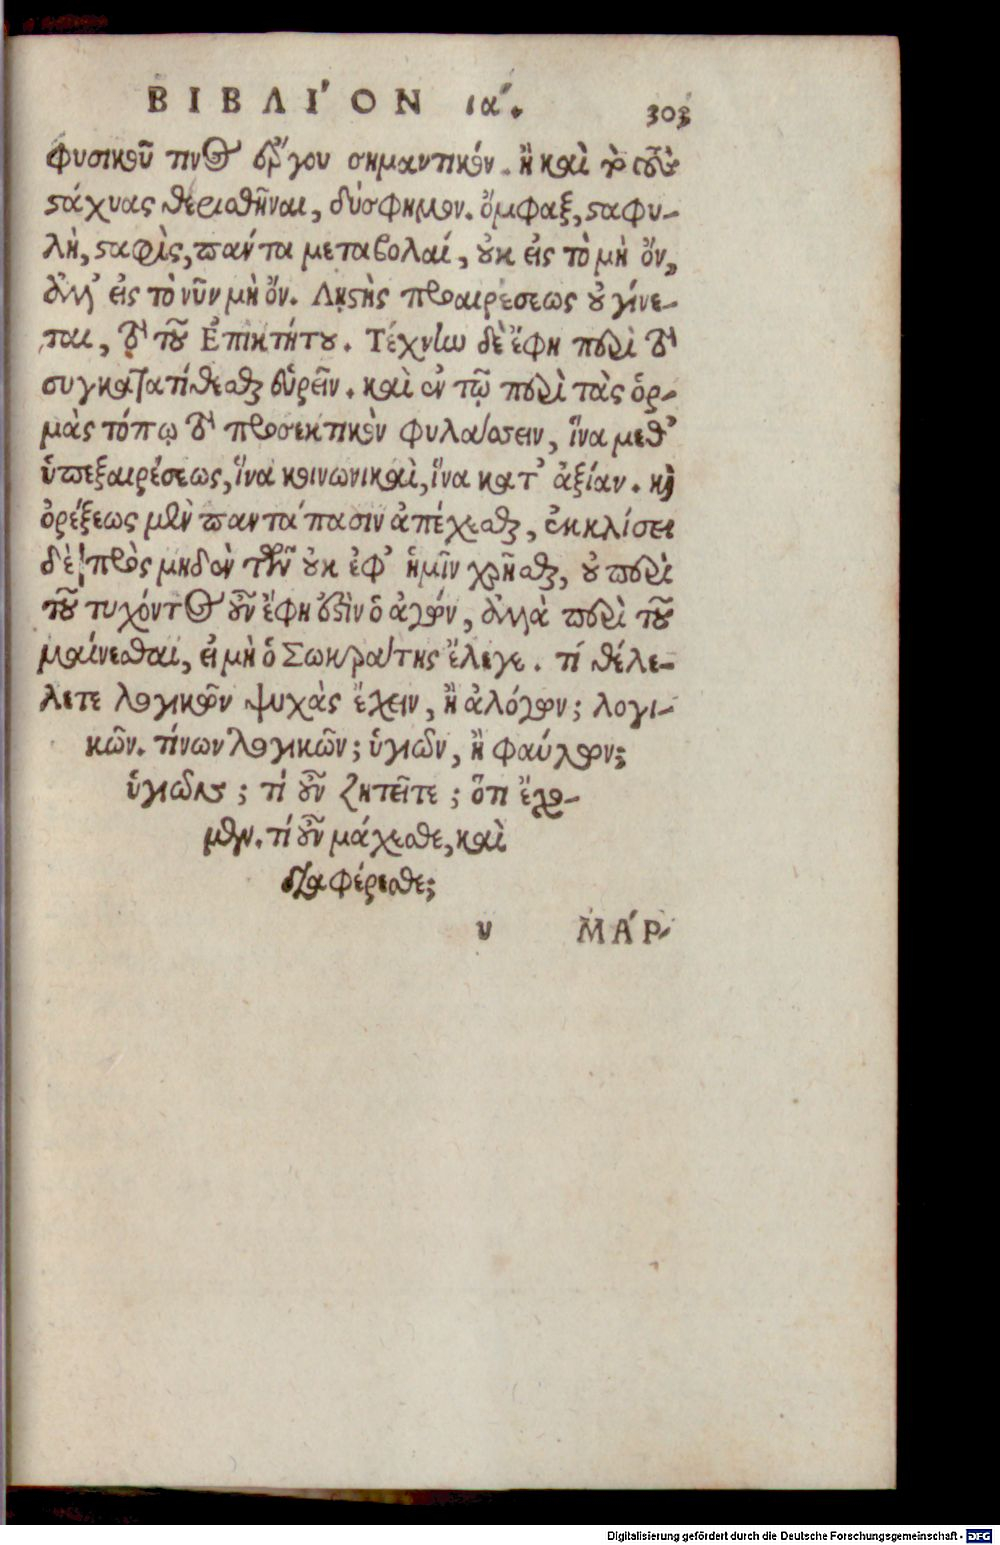 ΒΙΒΛΙ´ΟΝ ια´. 303
φυσικοῦ τινος ἔργου σημαντικόν. ἢ καὶ τὸ τοὺς
στάχυας θερισθῆναι, δύσφημον. ὄμφαξ, σταφυ-
λὴ, σταφὶς, πάντα μεταβολαί, οὐκ εἰς τὸ μὴ ὄν,
ἀλλ' εἰς τὸ νῦν μὴ ὄν. Λῃστὴς προαιρέσεως οὐ γίνε-
ται, τὸ τοῦ Ἐπικτήτου. Τέχνην δὲ ἔφη περὶ τὸ
συγκατατίθεσθαι εὑρεῖν. καὶ ἐν τῷ περὶ τὰς ὁρ-
μὰς τόπῳ τὸ προσεκτικὸν φυλάσσειν, ἵνα μεθ'
ὑπεξαιρέσεως, ἵνα κοινωνικαὶ, ἵνα κατ' ἀξίαν. καὶ
ὀρέξεως μὲν παντάπασιν ἀπέχεσθαι, ἐκκλίσει
δὲ πρὸς μηδὲν τῶν οὐκ ἐφ' ἡμῖν χρῆσθαι, οὐ περὶ
τοῦ τυχόντος οὖν ἔφη ἐστὶν ὁ ἀγών, ἀλλὰ περὶ τοῦ
μαίνεσθαι, εἰ μὴ ὁ Σωκράτης ἔλεγε. τί θέλε-
λετε λογικῶν ψυχὰς ἔχειν, ἢ ἀλόγων; λογι-
κῶν. τίνων λογικῶν; ὑγιῶν, ἢ φαύλων;
ὑγιῶν; τί οὖν ζητεῖτε; ὅτι ἔχο-
μεν. τί οὖν μάχεσθε, καὶ
διαφέρεσθε;
υ ΜΑ´Ρ-
Digitalisierung gefördert durch die Deutsche Forschungsgemeinschaft - DFG